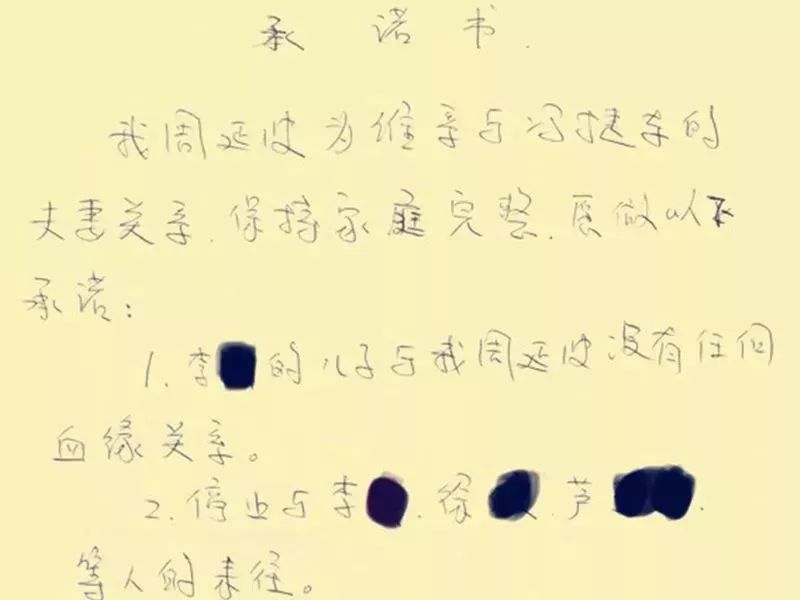 承诺书.
我周延波为维系与冯捷东的
夫妻关系.保持家庭完整.愿做以下
承诺：
1.李 的儿子与我周延波没有任何
血缘关系。
2.停止与李 .徐 .芦 .
等人的来往。